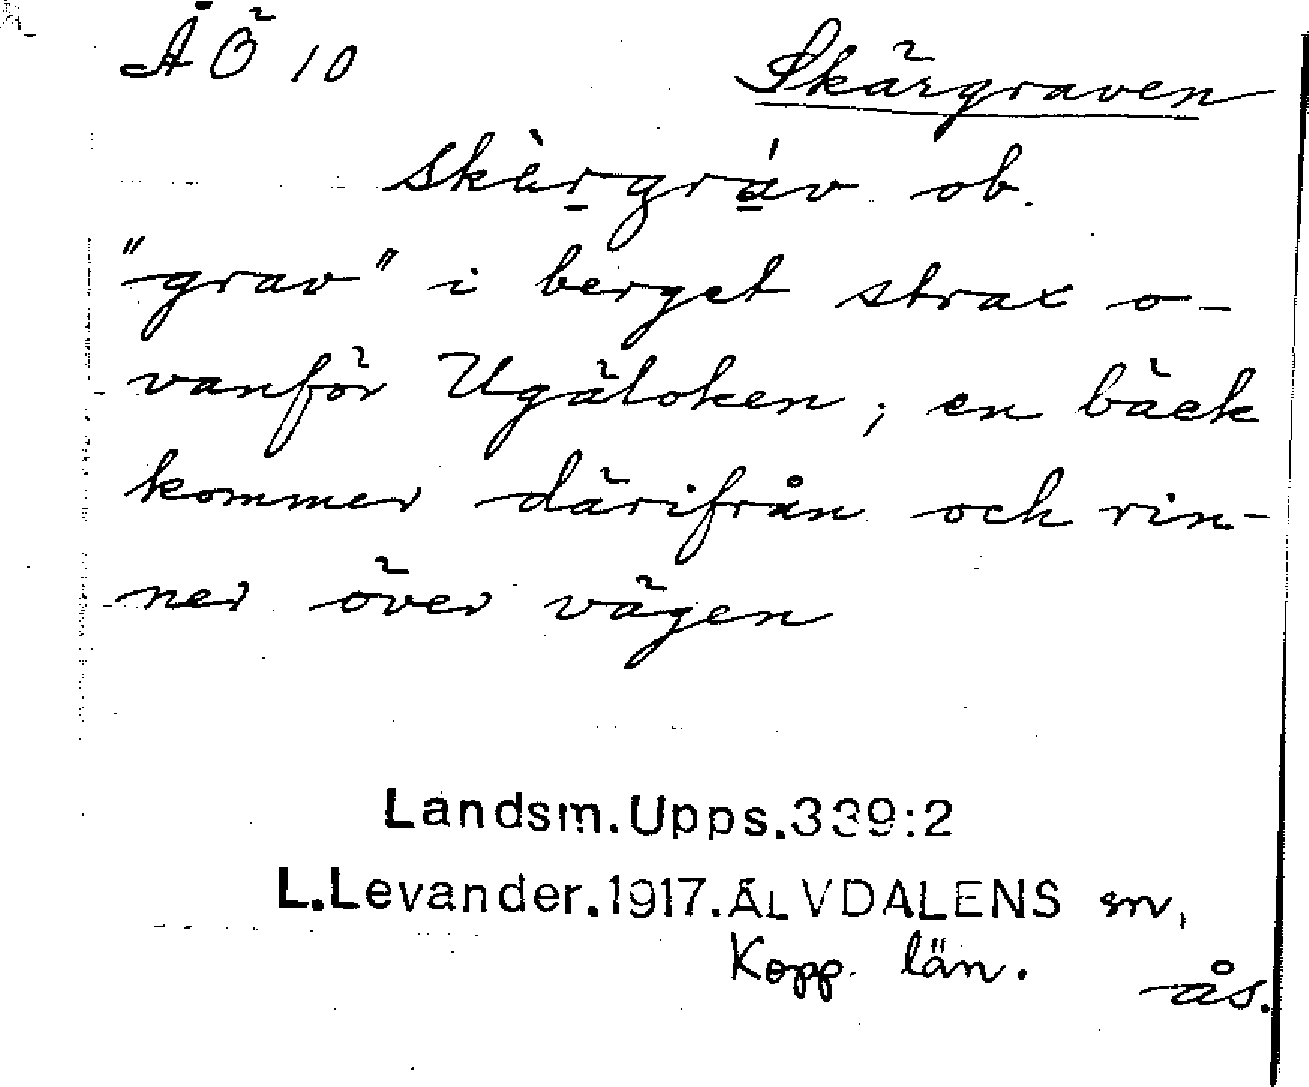 ÄÖ 10
Skärgraven
skè̱rgrá̱v ob.
"grav" i berget strax o-
vanför Ugäloken; en bäck
kommer därifrån och rin-
ner över vägen
Landsm.Upps.339:2
L.Levander.1917.ÄLVDALENS sn,
Kopp. län.
ås.